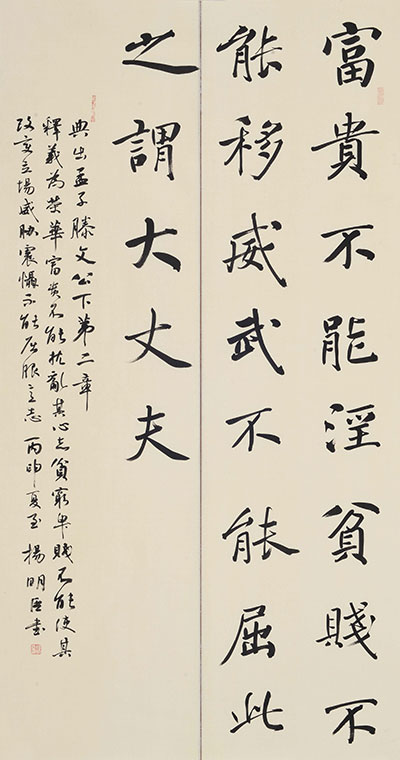 富貴不能淫貧賤不
能移威武不能屈此
之謂大丈夫
典出孟子滕文公下第二章
釋義為榮華富貴不能扰亂其心志貧窮卑賤不能使其
改变立場威胁震慑不能屈服意志丙申夏至楊明臣書